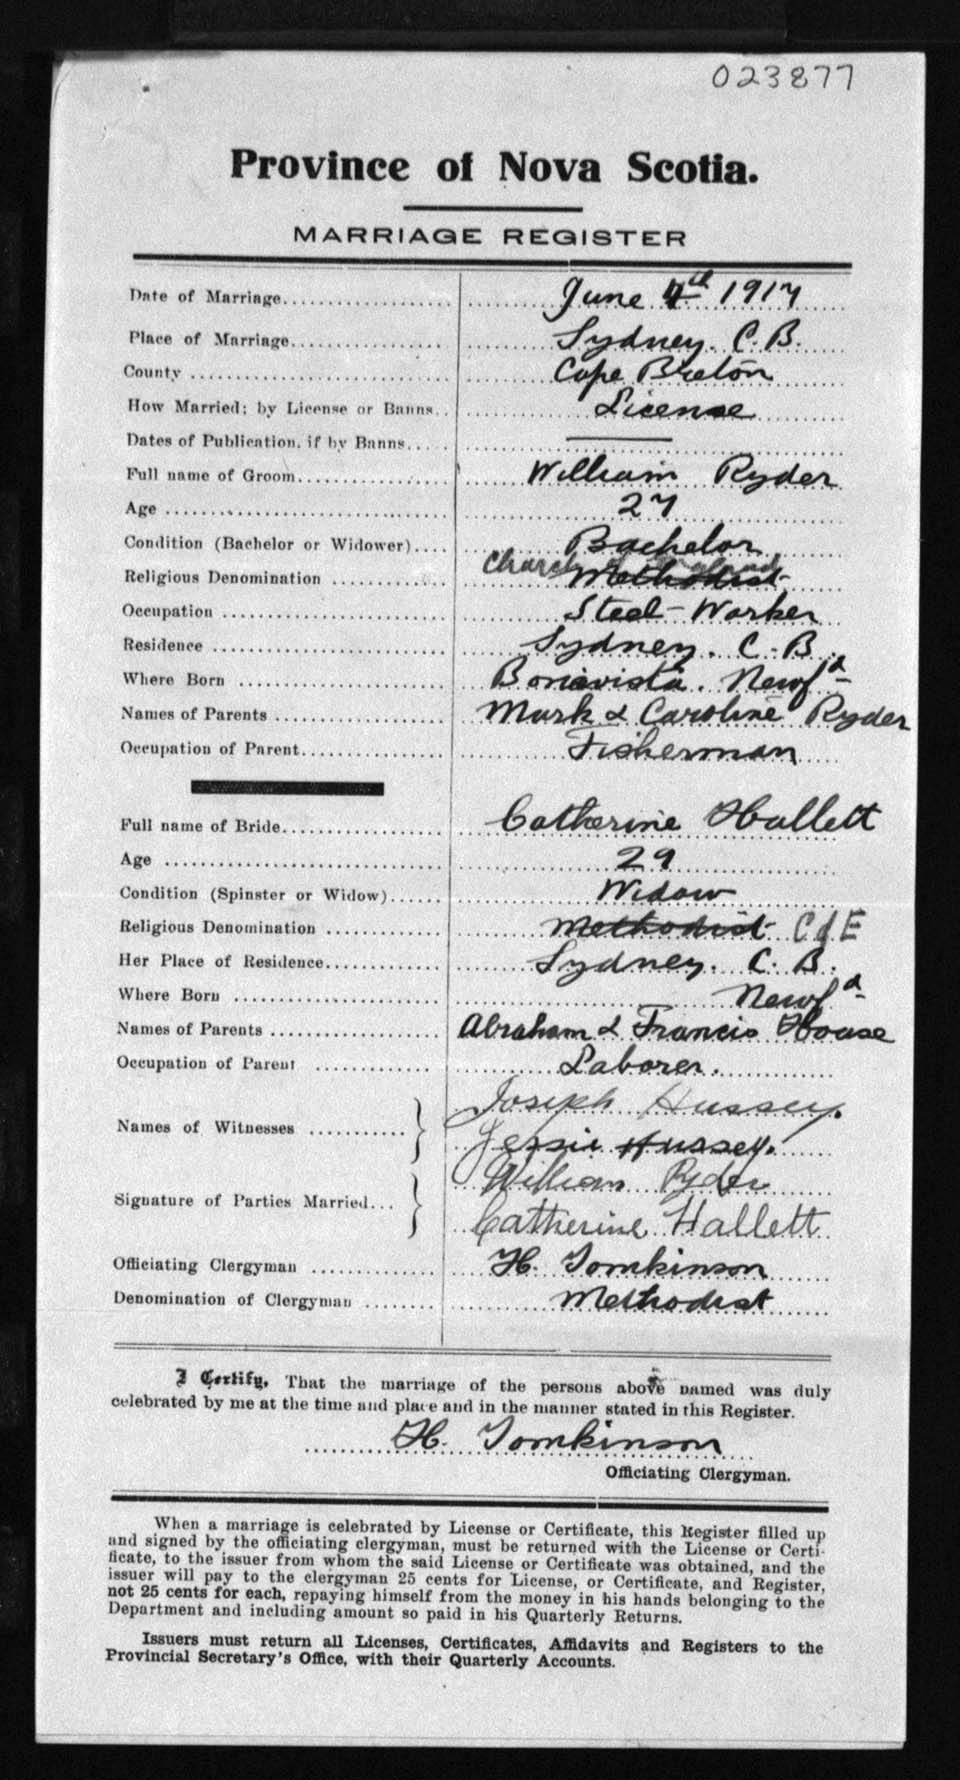 023877
Province of Nova Scotia.
MARRIAGE REGISTER
Date of Marriage.................... June 4th 1917
Place of Marriage................... Sydney. C.B.
County .............................. Cape Breton
How Married; by License or Banns.. License
Dates of Publication, if by Banns..... ———
Full name of Groom.................. William Ryder
Age ................................. 27
Condition (Bachelor or Widower).... Bachelor
Church of England
Religious Denomination ............. Methodist
Occupation ......................... Steel-Worker
Residence .......................... Sydney. C.B.
Where Born ........................ Bonavista. Newfd
Names of Parents ................... Mark & Caroline Ryder
Occupation of Parent................ Fisherman
Full name of Bride.................. Catherine Hallett
Age ................................. 29
Condition (Spinster or Widow)...... Widow
Religious Denomination ............. Methodist C of E
Her Place of Residence.............. Sydney. C.B.
Where Born ........................ Newfd
Names of Parents ................... Abraham & Francis House
Occupation of Parent ............... Laborer.
Joseph Hussey.
Names of Witnesses ............ } Jessie Hussey.
William Ryder
Signature of Parties Married... } Catherine Hallett
Officiating Clergyman ............... H. Tomkinson
Denomination of Clergyman ........ Methodist
I Certify, That the marriage of the persons above named was duly
celebrated by me at the time and place and in the manner stated in this Register.
H. Tomkinson
Officiating Clergyman.
When a marriage is celebrated by License or Certificate, this Register filled up
and signed by the officiating clergyman, must be returned with the License or Certi-
ficate, to the issuer from whom the said License or Certificate was obtained, and the
issuer will pay to the clergyman 25 cents for License, or Certificate, and Register,
not 25 cents for each, repaying himself from the money in his hands belonging to the
Department and including amount so paid in his Quarterly Returns.
Issuers must return all Licenses, Certificates, Affidavits and Registers to the
Provincial Secretary's Office, with their Quarterly Accounts.